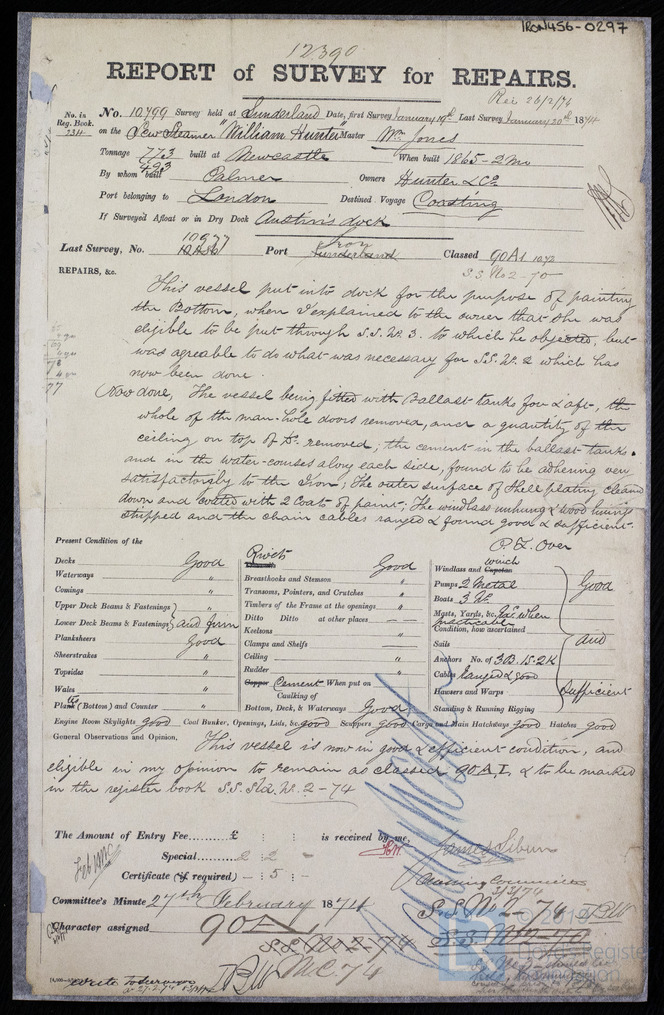 IRON456-0297
12390
REPORT of SURVEY for REPAIRS.
Rec 26/2/74
No. in Reg. Book. 234
No. 10499 Survey held at Sunderland Date, first Survey January 19th Last Survey January 20th 1874
on the Screw Steamer "William Hunter" Master Wm Jones
Tonnage 773 built at Newcastle When built 1865-2 mo
493
By whom built Palmer Owners Hunter & Co
Port belonging to London Destined Voyage Coasting
If Surveyed Afloat or in Dry Dock Austin's dock
10977
Last Survey, No. Port Sunderland Classed 90A1 1873
S.S. No 2-70
REPAIRS, &c.
This vessel put into dock for the purpose of painting
the Bottom, when I explained to the owner that she was
eligible to be put through S.S. No. 3. to which he objected, but
was agreable to do what was necessary for S.S. No. 2 which has
now been done.
Now done, The vessel being fitted with Ballast tanks for & aft, the
whole of the man-hole doors removed, and a quantity of the
ceiling on top of Do. removed; the cement in the ballast tanks.
and in the water-courses along each side, found to be adhering very
satisfactorily to the Iron; The outer surface of shell plating cleaned
down and coated with 2 Coats of paint; The windlass unhung & wood linings
stripped and the chain cables ranged & found good & sufficient.
P. T. Over
Present Condition of the
Decks Good
Waterways "
Comings "
Upper Deck Beams & Fastenings
Lower Deck Beams & Fastenings and firm
Planksheers Good
Sheerstrakes "
Topsides "
Wales "
Plank (Bottom) and Counter "
Rivets Good
Breasthooks and Stemson "
Transoms, Pointers, and Crutches "
Timbers of the Frame at the openings "
Ditto Ditto at other places — —
Keelsons "
Clamps and Shelfs —
Ceiling "
Rudder "
Copper Cement When put on
Caulking of
Bottom, Deck, & Waterways Good
Windlass and Capstan winch
Pumps 2 Metal
Boats 3 No.
Masts, Yards, &c. when
practicable
Condition, how ascertained
Sails
Anchors No. of 3B. 1S. 2K
Cables ranged & good
Hawsers and Warps
Standing & Running Rigging
Good
and
Sufficient
Engine Room Skylights good Coal Bunker, Openings, Lids, &c. good Scuppers good Cargo and Main Hatchways good Hatches good
General Observations and Opinion,
This vessel is now in good & efficient condition, and
eligible in my opinion to remain as classed 90 A.I. & to be marked
in the register book S.S. Sld. No. 2-74
The Amount of Entry Fee £ : : is received by me,
Special 2 : 2 : -
Certificate (if required) - : 5 : -
Committee's Minute 27th February 1874
3/3/74
S.S. No 2-74
Character assigned 90A1
S.S. No 2-74
M.C. 74
© 2019
Lloyd's Register
Foundation